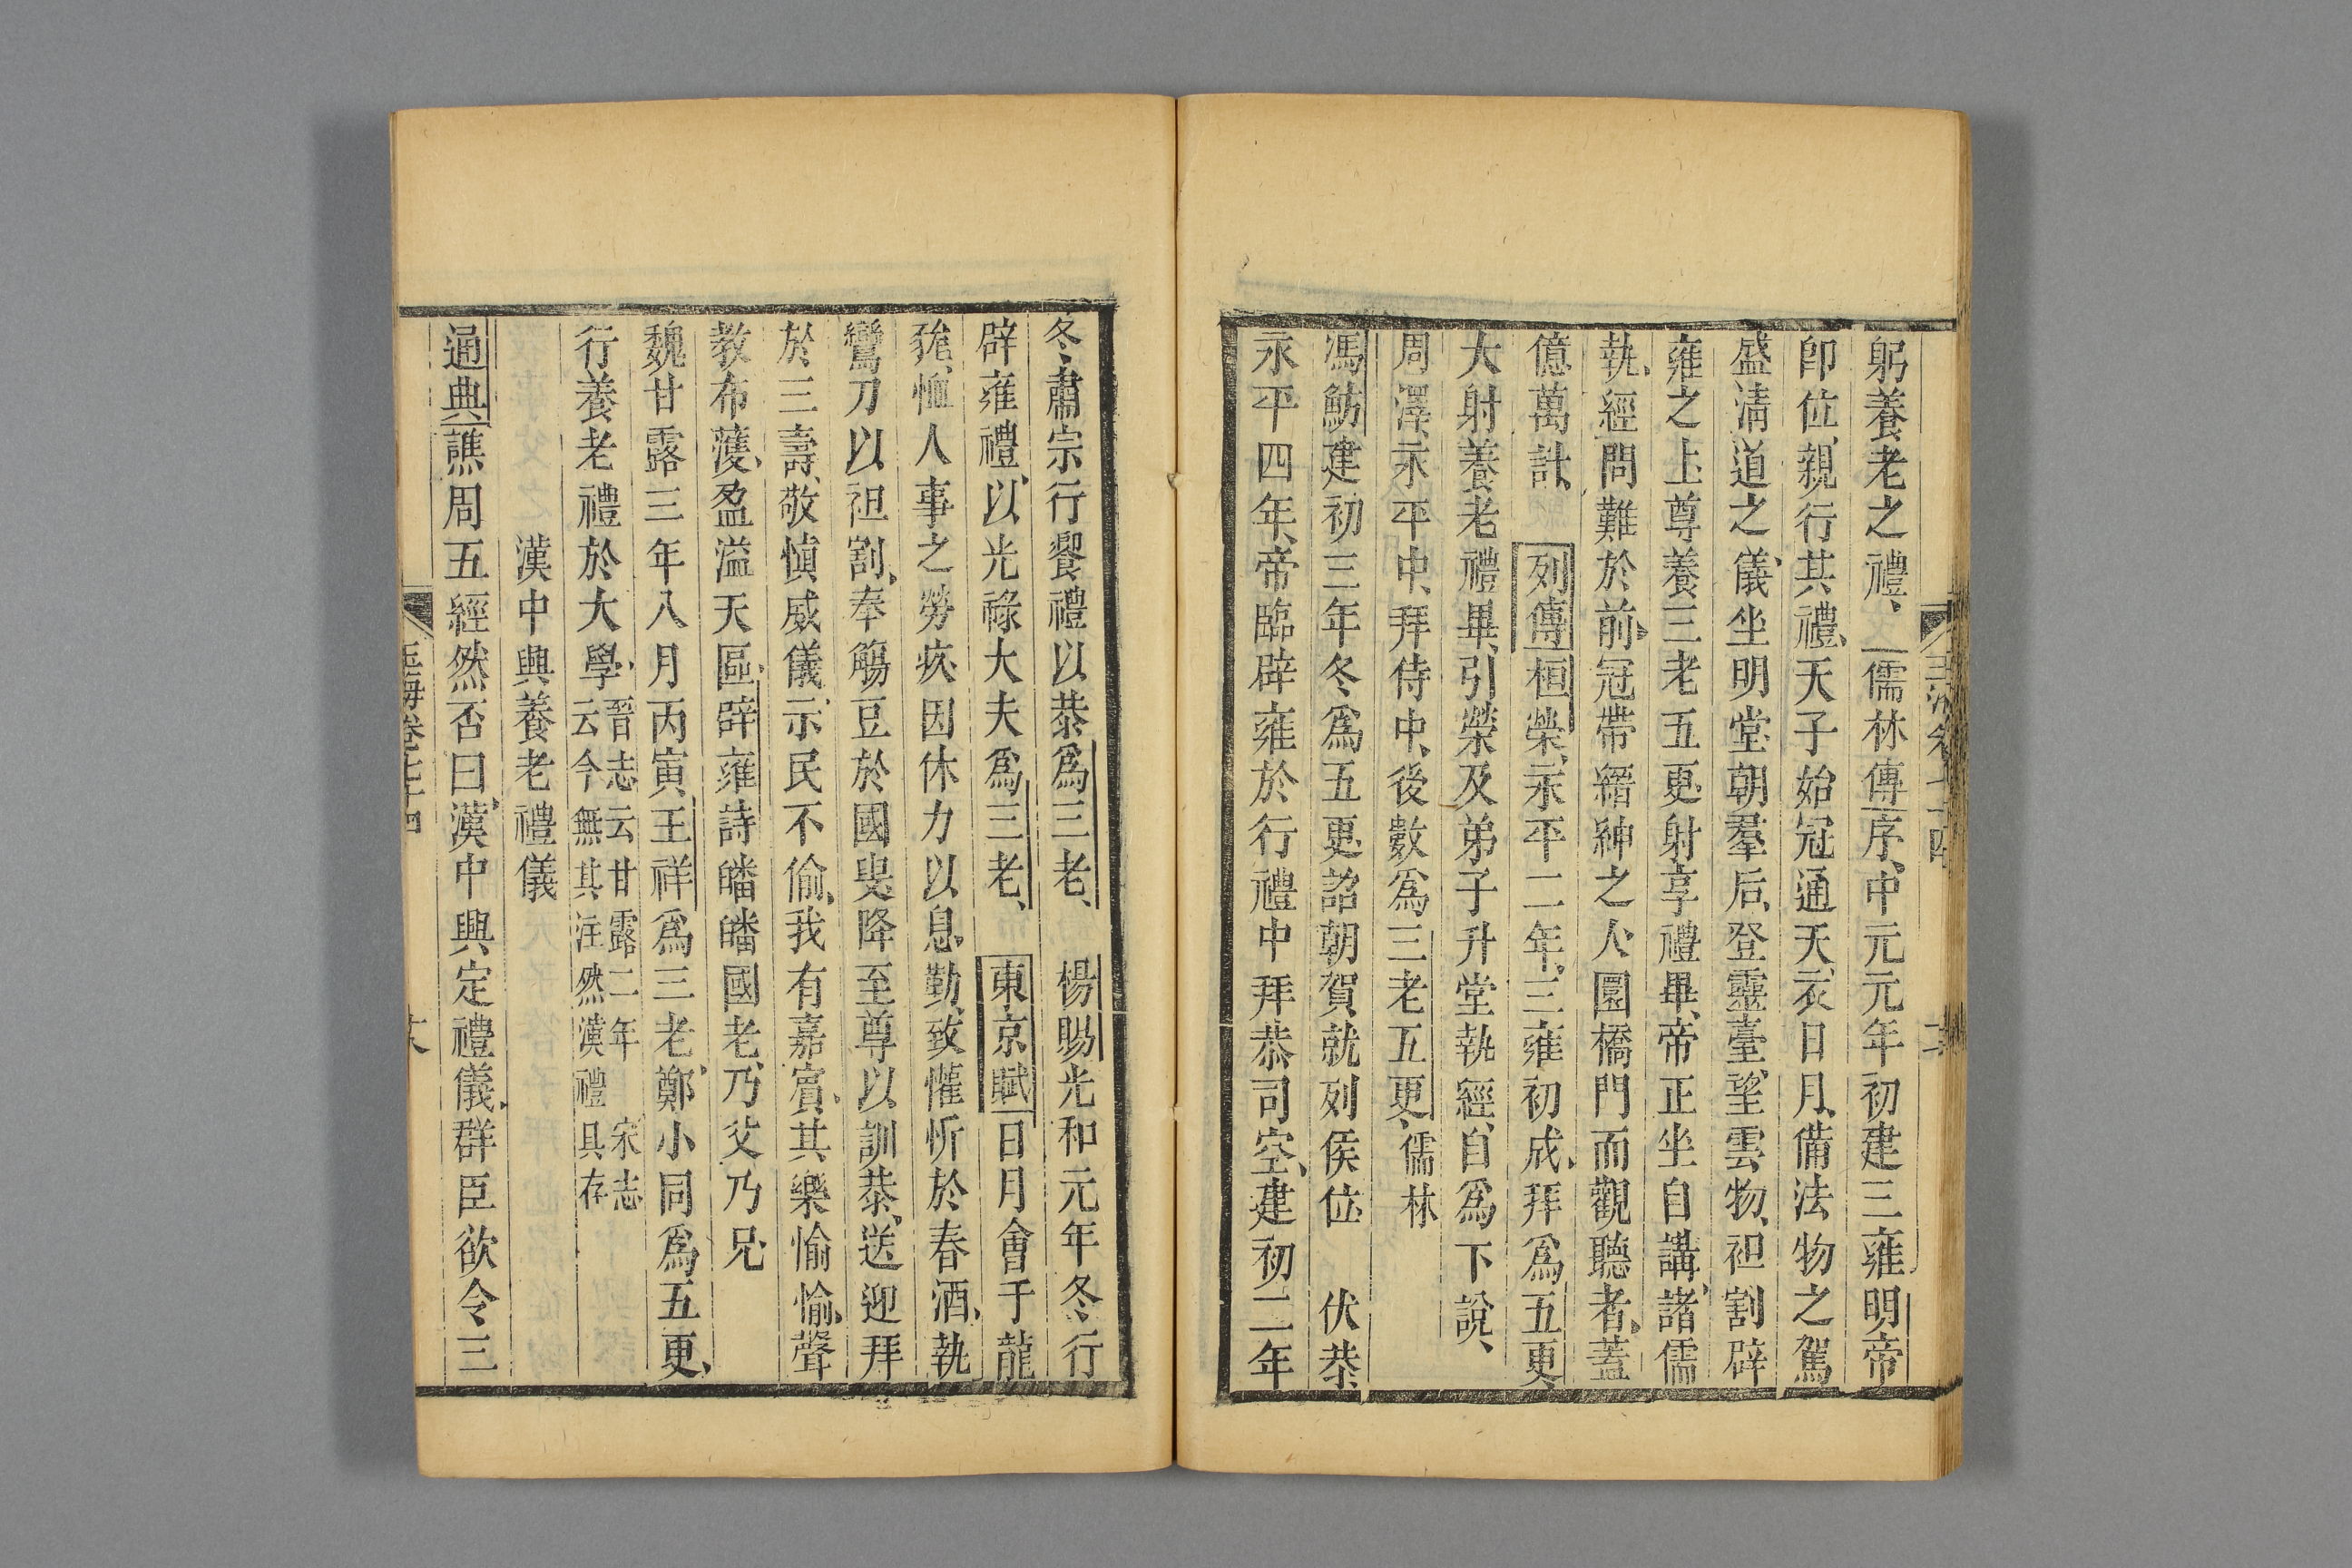 躬養老之禮、儒林傳序、中元元年初建三雍明帝
卽位、親行其禮、天子始冠通天、衣日月、備法物之駕
盛淸道之儀、坐明堂、朝羣后、登靈臺、望雲物、袒割辟
雍之上、尊養三老五更、射享禮畢、帝正坐自講、諸儒
執經問難於前、冠帶縉紳之人、圜橋門而觀聽者、蓋
億萬計、列傳桓榮、永平二年、三雍初成、拜爲五更、
大射養老禮畢、引榮及弟子升堂執經、自爲下說、
周澤、永平中、拜侍中、後數爲三老五更、儒林
馮魴建初三年冬爲五更、詔朝賀、就列侯位 伏恭、
永平四年、帝臨辟雍於行禮中拜恭司空、建初二年
冬、肅宗行饗禮以恭爲三老、 楊賜光和元年冬行
辟雍禮、以光祿大夫爲三老、東京賦日月會于龍
狵、恤人事之勞疚、因休力以息勤、致懽忻於春酒、執
鸞刀以袒割、奉觴豆於國叟、降至尊以訓恭、送迎拜
於三壽、敬愼威儀、示民不偷、我有嘉賓、其樂愉愉、聲
教布濩、盈溢天區、辟雍詩皤皤國老、乃父乃兄、
魏甘露三年八月丙寅、王祥爲三老、鄭小同爲五更、
行養老禮於大學、晉志云甘露二年 宋志
云今無其注然漢禮具存
漢中興養老禮儀
通典譙周五經然否曰、漢中興定禮儀、群臣欲令三
玉海卷七十四